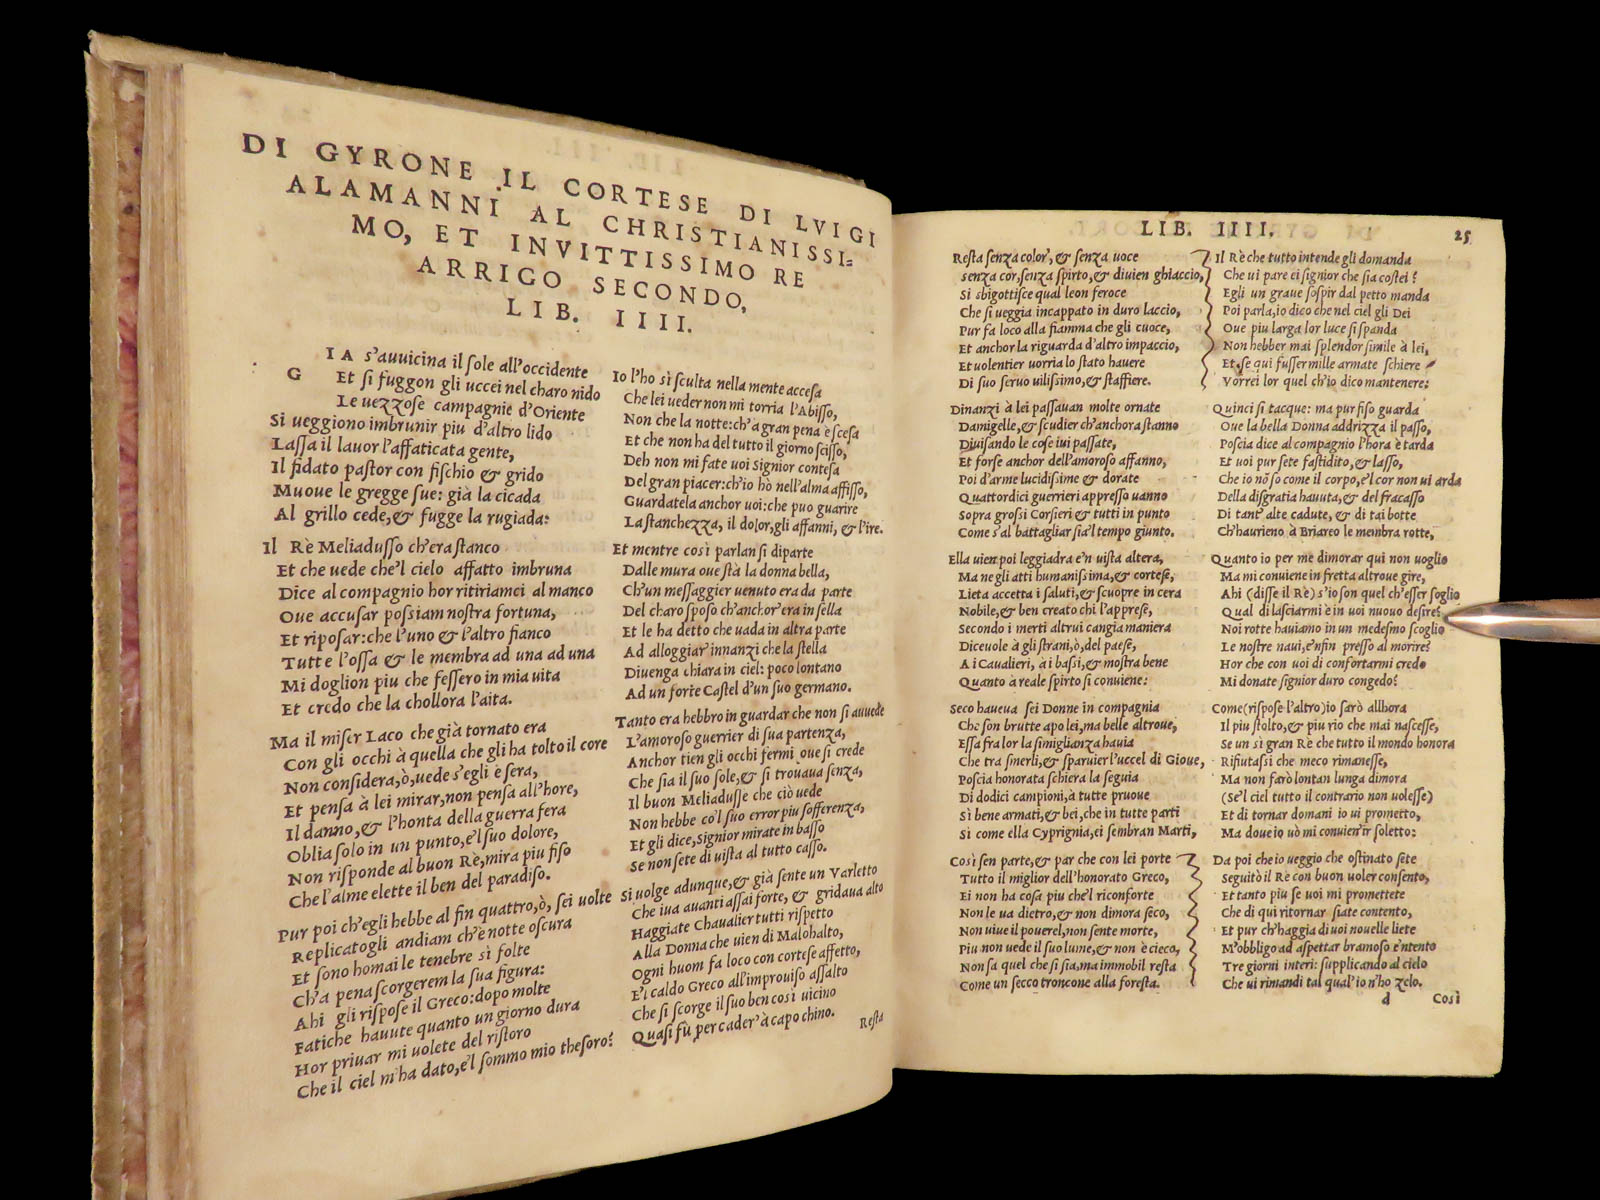 DI GYRONE IL CORTESE DI LVIGI
ALAMANNI AL CHRISTIANISSI=
MO, ET INVITTISSIMO RE
ARRIGO SECONDO,
LIB. IIII.
GIA s'auuicina il ſole all'occidente
Et ſi fuggon gli uccei nel charo nido
Le uezzoſe campagnie d'Oriente
Si ueggiono imbrunir piu d'altro lido
Laſſa il lauor l'affaticata gente,
Il fidato paſtor con fiſchio & grido
Muoue le gregge ſue: già la cicada
Al grillo cede,& fugge la rugiada:
Il Rè Meliaduſſo ch'era ſtanco
Et che uede che'l cielo affatto imbruna
Dice al compagnio hor ritiriamci al manco
Oue accuſar poſsiam noſtra fortuna,
Et ripoſar:che l'uno & l'altro fianco
Tutte l'oſſa & le membra ad una ad una
Mi doglion piu che feſſero in mia uita
Et credo che la chollora l'aita.
Ma il miſer Laco che già tornato era
Con gli occhi à quella che gli ha tolto il core
Non conſidera,ò,uede s'egli è ſera,
Et penſa à lei mirar,non penſa all'hore,
Il danno,& l'honta della guerra fera
Oblia ſolo in un punto,e'l ſuo dolore,
Non riſponde al buon Rè,mira piu fiſo
Che l'alme elette il ben del paradiſo.
Pur poi ch'egli hebbe al fin quattro,ò, ſei uolte
Replicatogli andiam ch'è notte oſcura
Et ſono homai le tenebre sì folte
Ch'a pena ſcorgerem la ſua figura:
Ahi gli riſpoſe il Greco:dopo molte
Fatiche hauute quanto un giorno dura
Hor priuar mi uolete del riſtoro
Che il ciel m'ha dato,e'l ſommo mio theſoro?
Io l'ho sì ſculta nella mente acceſa
Che lei ueder non mi torria l'Abiſſo,
Non che la notte:ch'a gran pena è ſceſa
Et che non ha del tutto il giorno ſciſſo,
Deh non mi fate uoi signior conteſa
Del gran piacer:ch'io hò nell'alma affiſſo,
Guardatela anchor uoi:che puo guarire
La ſtanchezza, il dolor,gli affanni, & l'ire.
Et mentre così parlan ſi diparte
Dalle mura oue ſtà la donna bella,
Ch'un meſſaggier uenuto era da parte
Del charo ſpoſo ch'anchor'era in ſella
Et le ha detto che uada in altra parte
Ad alloggiar innanzi che la ſtella
Diuenga chiara in ciel: poco lontano
Ad un forte Caſtel d'un ſuo germano.
Tanto era hebbro in guardar che non ſi auuede
L'amoroſo guerrier di ſua partenza,
Anchor tien gli occhi fermi oue ſi crede
Che ſia il ſuo ſole,& ſi trouaua ſenza,
Il buon Meliaduſſe che ciò uede
Non hebbe co'l ſuo error piu ſofferenza,
Et gli dice,signior mirate in baſſo
Se non ſete di uiſta al tutto caſſo.
Si uolge adunque,& già ſente un Varletto
Che iua auanti aſſai forte, & gridaua alto
Haggiate Chaualier tutti riſpetto
Alla Donna che uien di Malohalto,
Ogni huom fa loco con corteſe affetto,
E'l caldo Greco all'improuiſo aſſalto
Che ſi ſcorge il ſuo ben così uicino
Quaſi fù per cader'à capo chino.
Reſta
LIB. IIII.
25
Reſta ſenza color',& ſenza uoce
ſenza cor,ſenza ſpirto,& diuien ghiaccio,
Si sbigottiſce qual leon feroce
Che ſi ueggia incappato in duro laccio,
Pur fa loco alla fiamma che gli cuoce,
Et anchor la riguarda d'altro impaccio,
Et uolentier uorria lo ſtato hauere
Di ſuo ſeruo uiliſsimo,& ſtaffiere.
Dinanzi à lei paſſauan molte ornate
Damigelle,& ſcudier ch'anchora ſtanno
Diuiſando le coſe iui paſſate,
Et forſe anchor dell'amoroſo affanno,
Poi d'arme lucidiſsime & dorate
Quattordici guerrieri appreſſo uanno
Sopra groſsi Corſieri & tutti in punto
Come s'al battagliar ſia'l tempo giunto.
Ella uien poi leggiadra e'n uiſta altera,
Ma ne gli atti humaniſsima,& corteſe,
Lieta accetta i ſaluti,& ſcuopre in cera
Nobile,& ben creato chi l'appreſe,
Secondo i merti altrui cangia maniera
Diceuole à gli ſtrani,ò,del paeſe,
A i Caualieri, à i baſsi,& moſtra bene
Quanto à reale ſpirto ſi conuiene:
Seco haueua ſei Donne in compagnia
Che ſon brutte apo lei,ma belle altroue,
Eſſa fra lor la ſimiglianza hauia
Che tra ſmerli,& ſparuier l'uccel di Gioue,
Poſcia honorata ſchiera la ſeguia
Di dodici campioni,à tutte pruoue
Sì bene armati,& bei,che in tutte parti
Sì come ella Cyprignia,ei ſembran Marti,
Così ſen parte,& par che con lei porte
Tutto il miglior dell'honorato Greco,
Ei non ha coſa piu che'l riconforte
Non le ua dietro,& non dimora ſeco,
Non uiue il pouerel,non ſente morte,
Piu non uede il ſuo lume,& non è cieco,
Non ſa quel che ſi ſia,ma immobil reſta
Come un ſecco troncone alla foreſta.
Il Rè che tutto intende gli domanda
Che ui pare ei signior che ſia coſtei?
Egli un graue ſoſpir dal petto manda
Poi parla,io dico che nel ciel gli Dei
Oue piu larga lor luce ſi ſpanda
Non hebber mai ſplendor ſimile à lei,
Et ſe qui fuſſer mille armate ſchiere
Vorrei lor quel ch'io dico mantenere:
Quinci ſi tacque: ma pur fiſo guarda
Oue la bella Donna addrizza il paſſo,
Poſcia dice al compagnio l'hora è tarda
Et uoi pur ſete faſtidito,& laſſo,
Che io nõ ſo come il corpo,e'l cor non ui arda
Della diſgratia hauuta,& del fracaſſo
Di tant'alte cadute, & di tai botte
Ch'haurieno à Briareo le membra rotte,
Quanto io per me dimorar qui non uoglio
Ma mi conuiene in fretta altroue gire,
Ahi (diſſe il Rè) s'io ſon quel ch'eſſer ſoglio
Qual di laſciarmi è in uoi nuouo deſire?
Noi rotte hauiamo in un medeſmo ſcoglio
Le noſtre naui,e'nfin preſſo al morire?
Hor che con uoi di confortarmi credo
Mi donate signior duro congedo?
Come(riſpoſe l'altro)io ſarò allhora
Il piu ſtolto,& piu rio che mai naſceſſe,
Se un sì gran Rè che tutto il mondo honora
Rifiutaſsi che meco rimaneſſe,
Ma non farò lontan lunga dimora
(Se'l ciel tutto il contrario non uoleſſe)
Et di tornar domani io ui prometto,
Ma doue io uò mi conuien'ir ſoletto:
Da poi che io ueggio che oſtinato ſete
Seguitò il Rè con buon uoler conſento,
Et tanto piu ſe uoi mi promettete
Che di qui ritornar ſiate contento,
Et pur ch'haggia di uoi nouelle liete
M'obbligo ad aſpettar bramoſo e'ntento
Tre giorni interi: ſupplicando al cielo
Che ui rimandi tal qual'io n'ho zelo.
d
Così